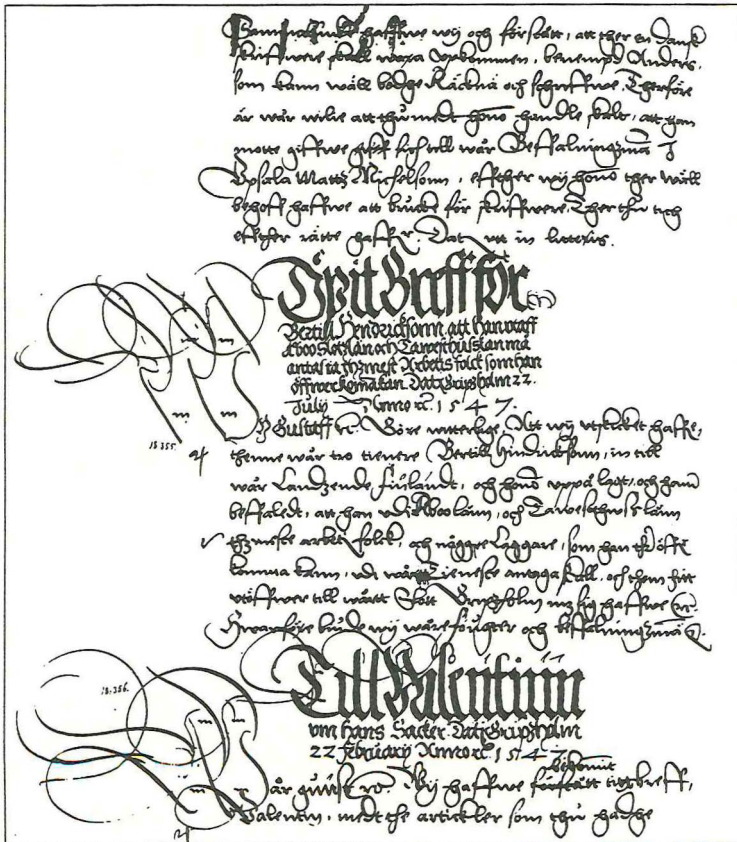 haffwe wij och förstått, att ther en Dansk
skriffwere skall waxa opkommen, benempd Anders,
som kann wäll bådhe Räckna och schriffwe. Therföre
är wår wilie att thu medt honō handle skalt, att han
motte giffwe sich till wår Beffalningzmā J
Vpsala Mattz Michelsonn, effther wij honō ther wäll
behoff haffwe att brucke för skriffwere. Ther thu tich
effther rätte haffr. Dat. vtt in litteris.
Öpit Breff för
Bertill Hendricksonn att han vtaff
Åboo Slotzlän och Tawesthusslän må
antasta thz mest Arbetis folck som han
öffwerkoma kan Datz Gripsholm 22.
July Anno rc. 1547
18:355.
Gustaff rc. Göre witterlige, Att wij vtskicket haffe,
thenne wår tro tienere Bertill Hindricksonn, in till
wår Landzende Finlandt, och honō vppå lagt, och hanū
beffaledt, att han vdi Åboo länn, och Tawesthuss länn
thz meste arbetz folck, och någgre Leggare, som han
komma kann, vdi wår Tieneste antaga skall, och them hijt
vtöffwer till wårtt Slott Gripzholm mz sig haffwe rc.
Hwarföre biude wij wåre fougter och beffalningzmä rc.
18:356.
Till Valentinn
om Hans Sacker Datz Gripzholm
22 February Anno rc. 1547
bekomit
Vår gunst rc. Wij haffwe förstått titt breff,
Valentin, medt the artickler som thu hadhe